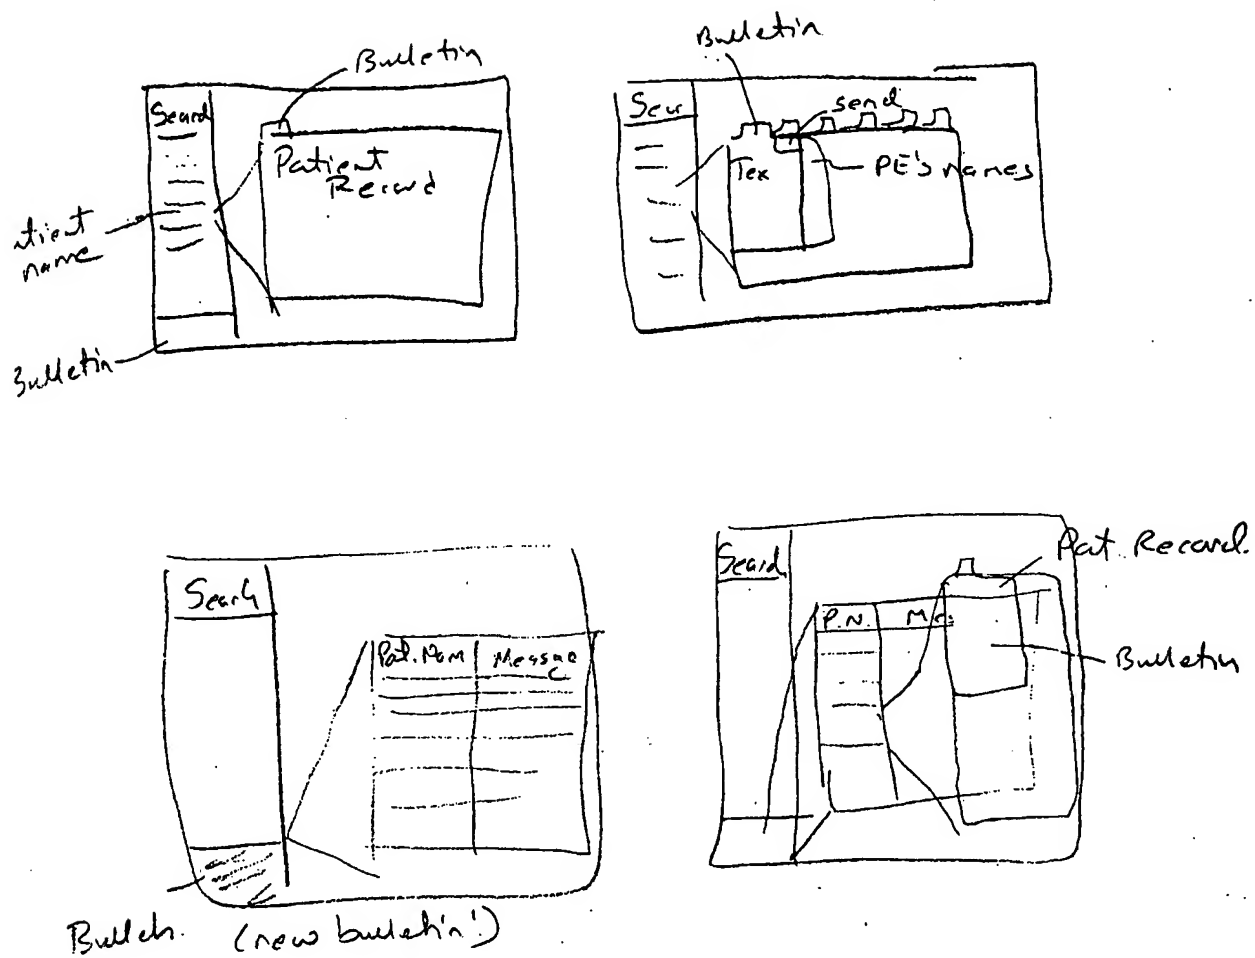 Bulletin
Search
Patient
Record
atient
name
Bulletin
Bulletin
Sear
send
Tex
PE's names
Search
Pat. Nam
Message
Bulletn.
(new bulletin!)
Search
Pat. Record.
P.N.
Mes.
Bulletin